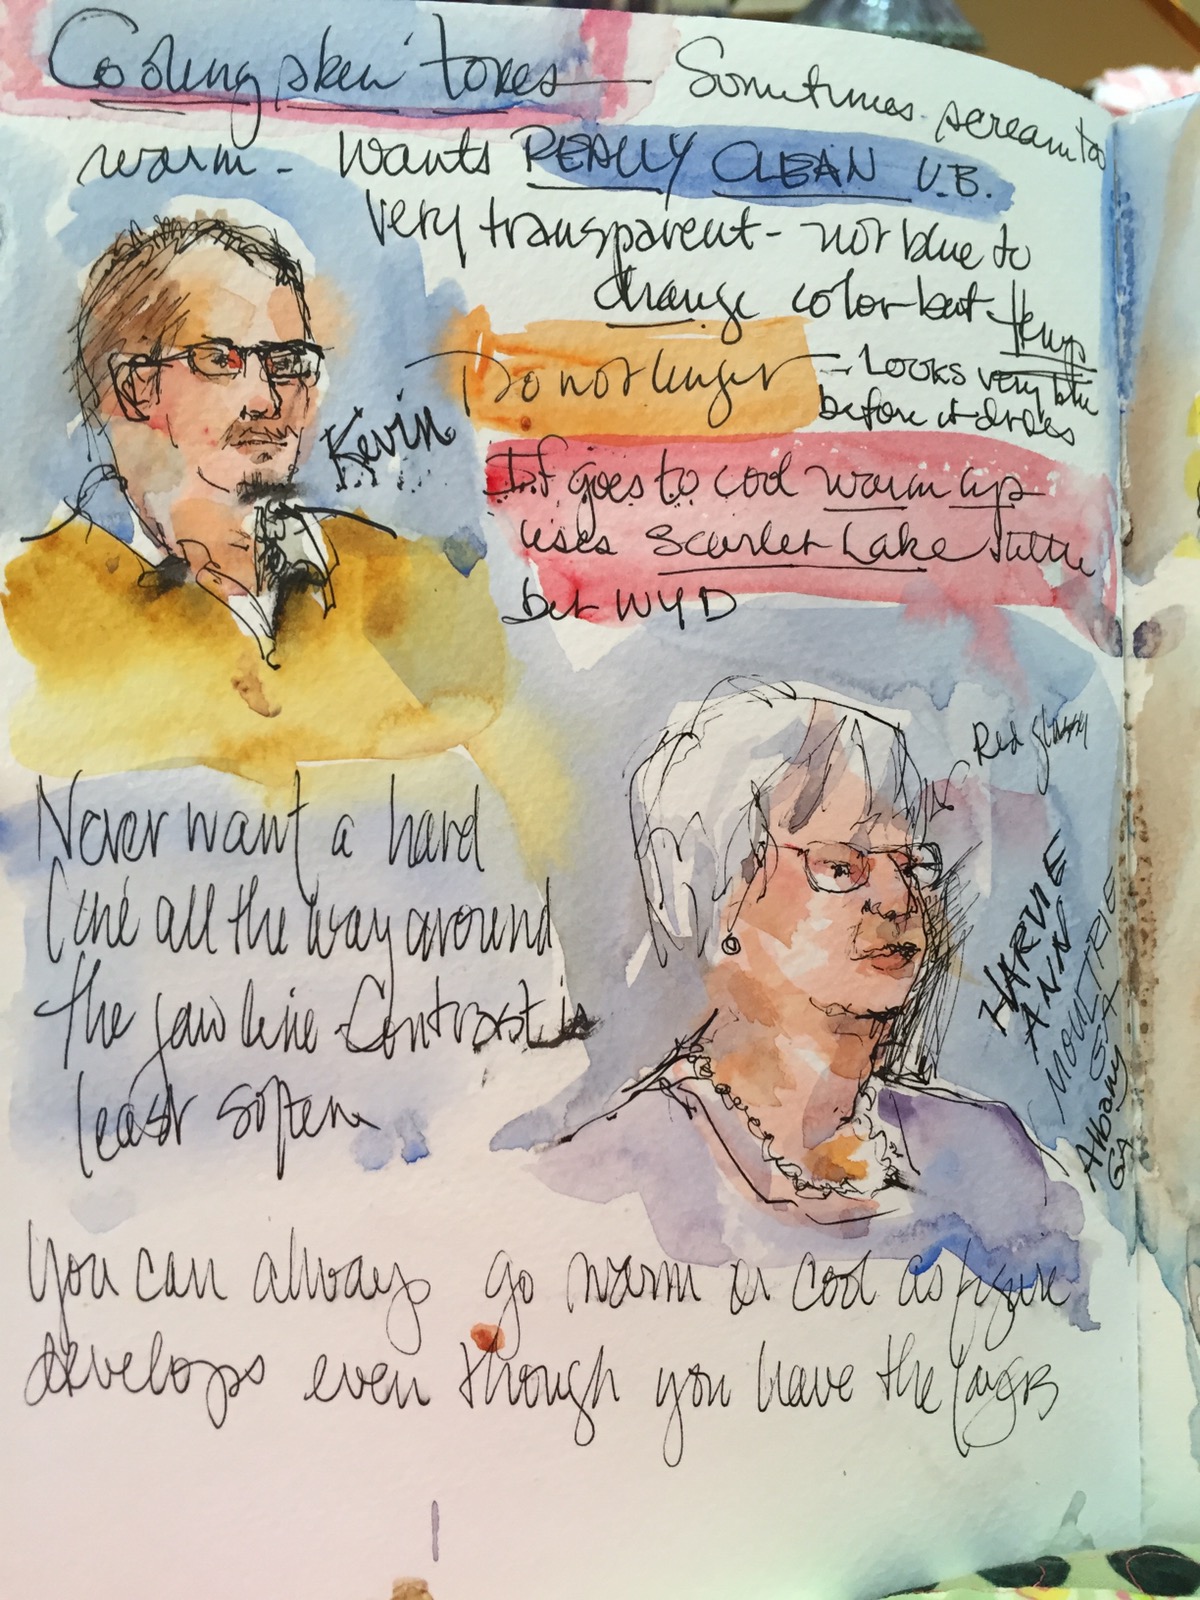 Cooling skin tones — Sometimes scream too
warm - wants REALLY CLEAN U.B.
very transparent - not blue to
change color but
Do not linger — Looks very blue
before it dries
Kevin
If goes to cool warm up
uses Scarlet Lake little
bit WYD
Red glassy
Never want a hard
line all the way around
the jaw line Contrast is
least soften
HARVIE
ANN
MOULTRIE
GA
Albany
GA
You can always go warm or cool as figure
develops even though you have the